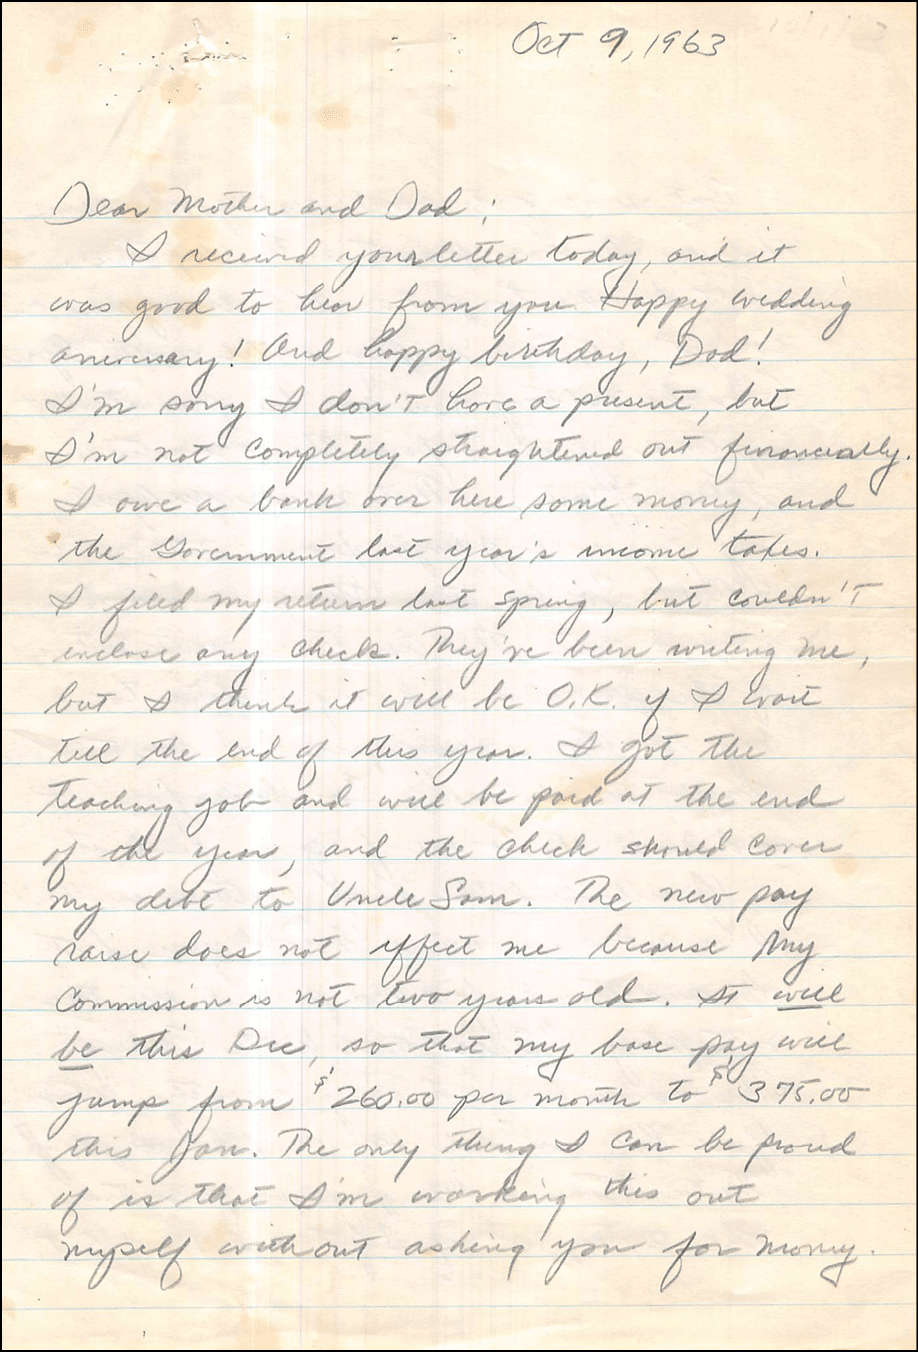 Oct 9, 1963
Dear Mother and Dad;
I received your letter today, and it
was good to hear from you. Happy wedding
aniversary! And happy birthday, Dad!
I'm sorry I don't have a present, but
I'm not completely straightened out financially.
I owe a bank over here some money, and
the Government last year's income taxes.
I filed my return last spring, but couldn't
enclose any check. They've been writing me,
but I think it will be O.K. if I wait
till the end of this year. I got the
teaching job and will be paid at the end
of the year, and the check should cover
my debt to Uncle Sam. The new pay
raise does not effect me because my
Commission is not two years old. It will
be this Dec, so that my base pay will
jump from $260.00 per month to $375.00
this Jan. The only thing I can be proud
of is that I'm working this out
myself without asking you for money.